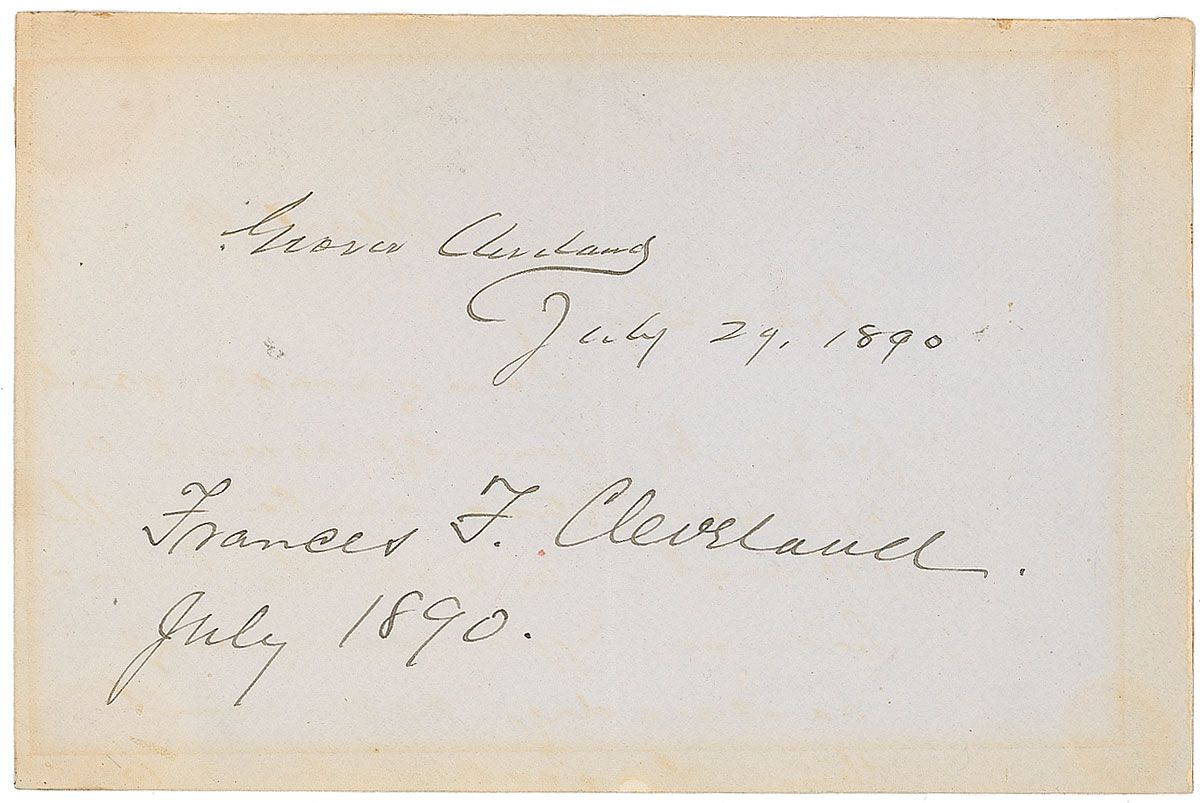 Grover Cleveland
July 29, 1890
Frances F. Cleveland.
July 1890.